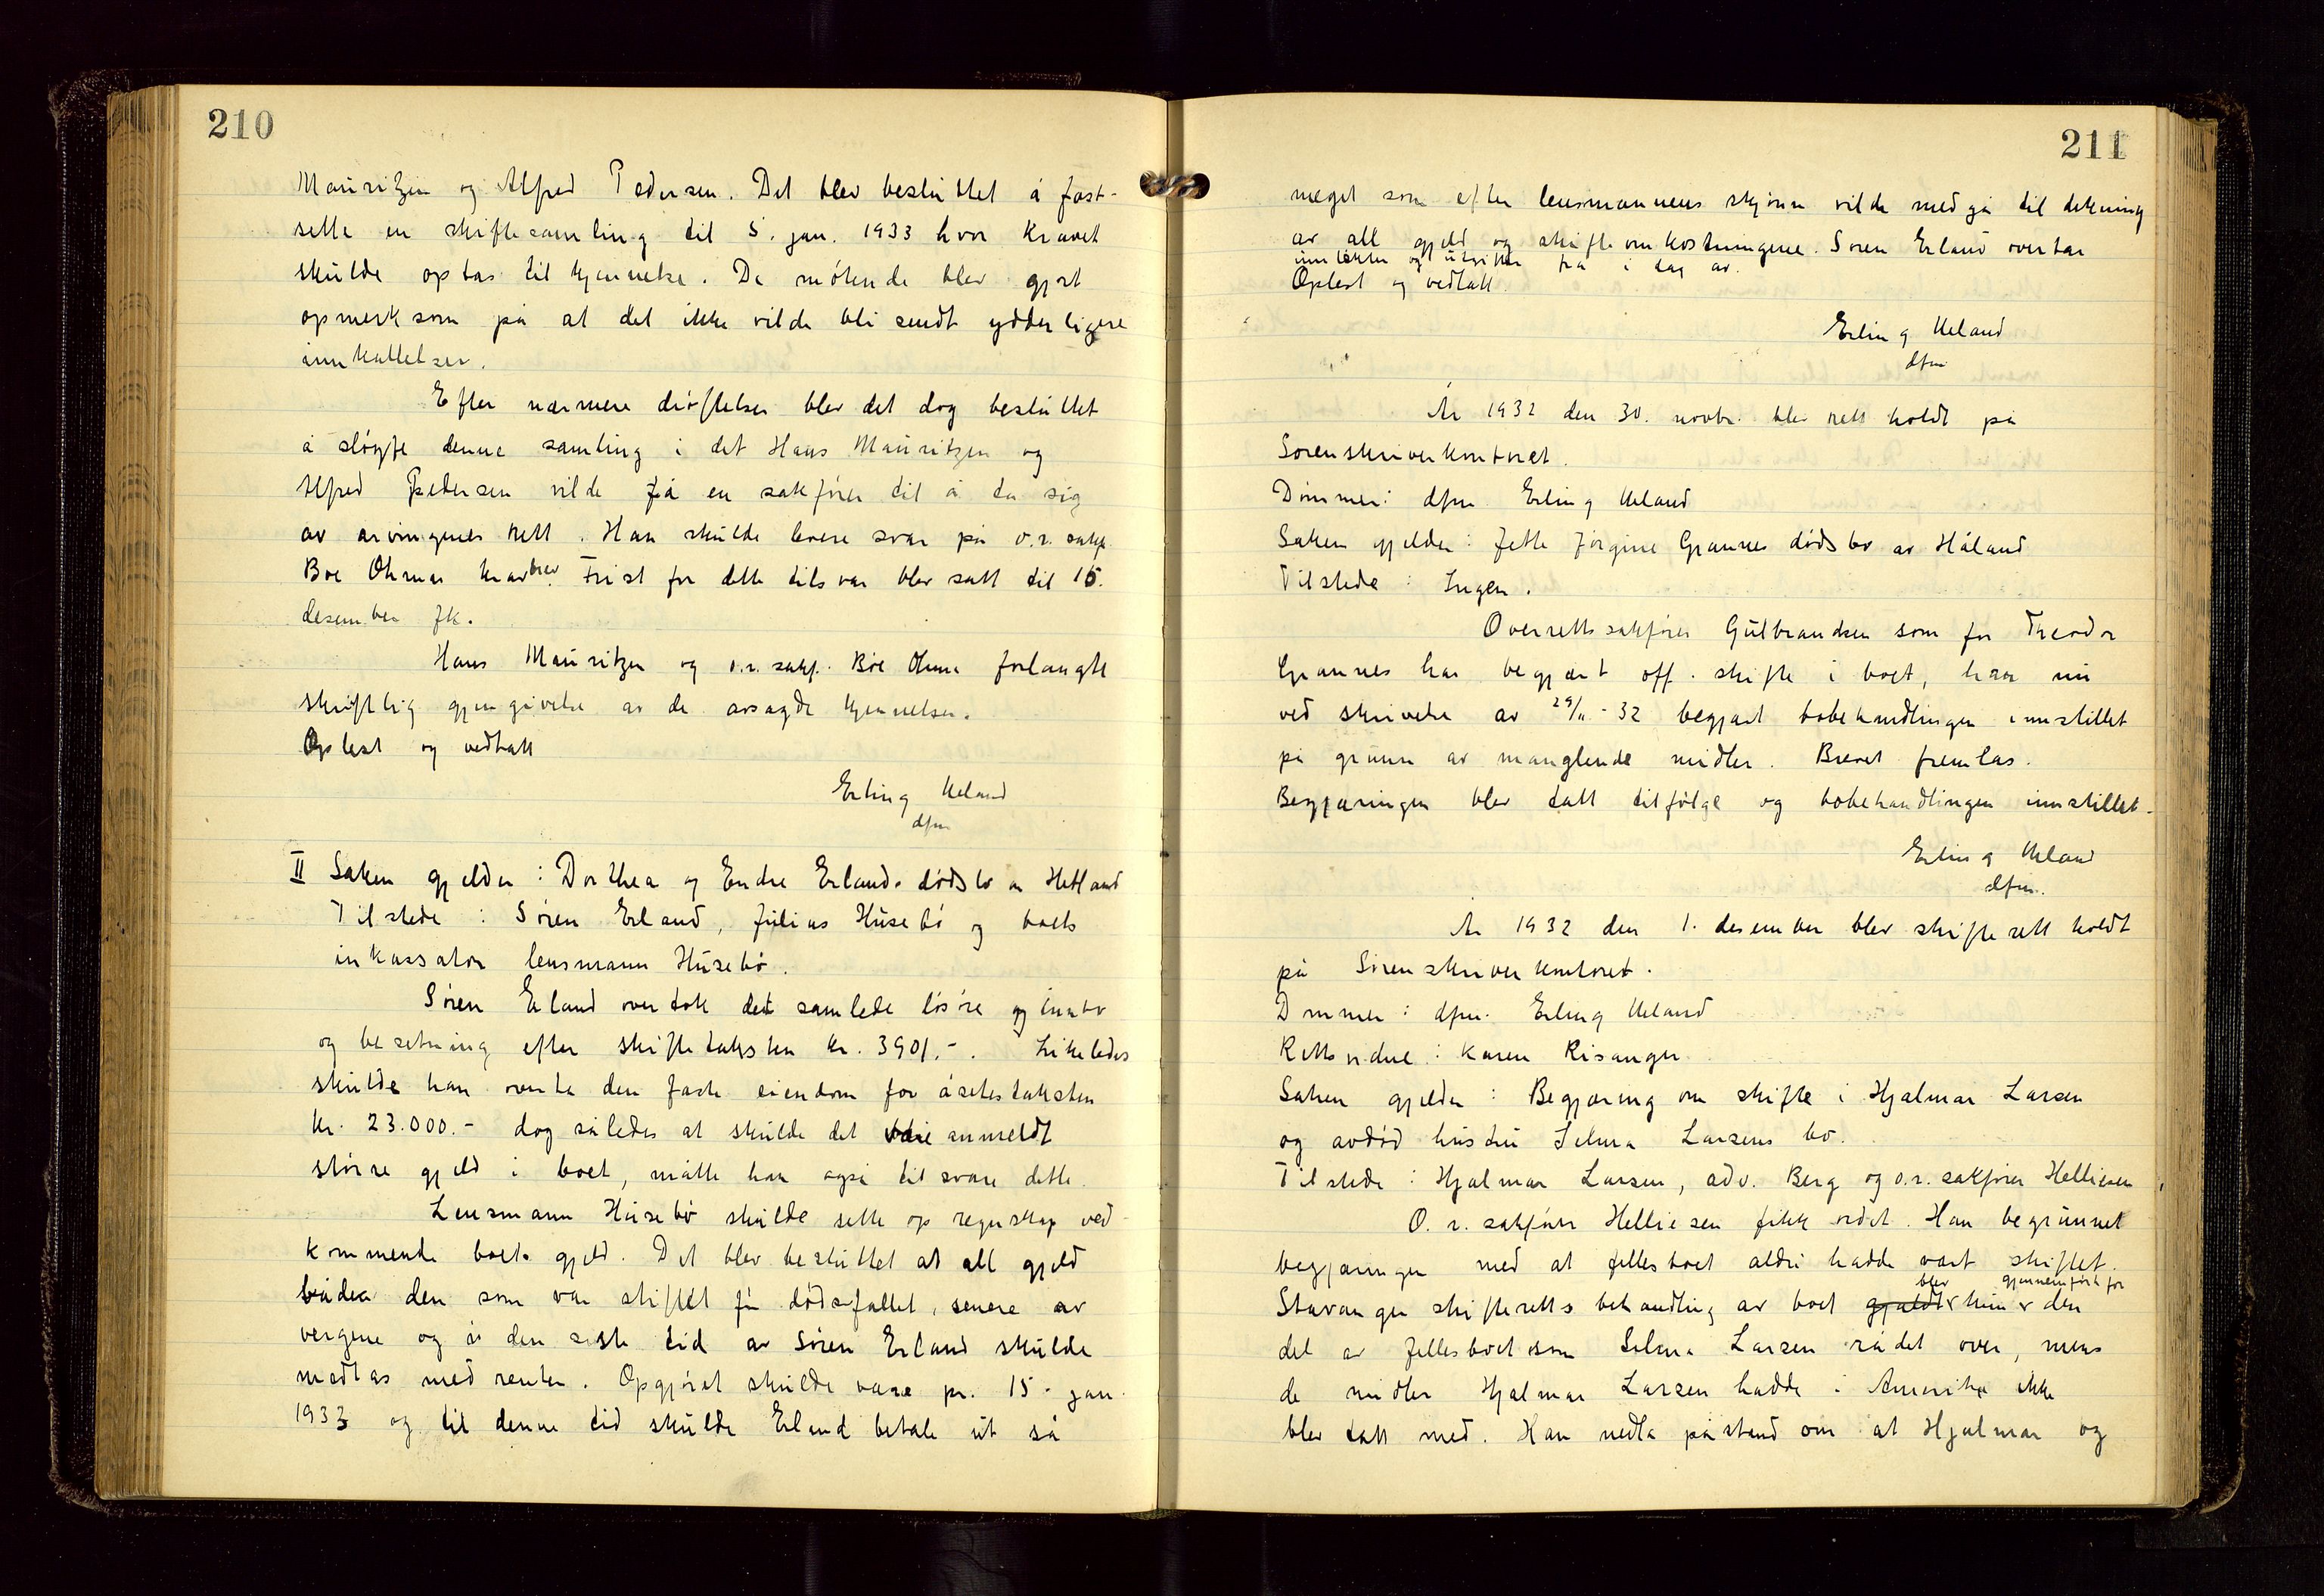 210
Mauritzen og Alfred Pedersen. Det blev besluttet å fast-
sette en skiftesamling til 5. jan. 1933 hvor kravet
skulde optas til kjennelse. De møtende blev gjort
opmerksom på at det ikke vilde bli sendt ydderligere
innkallelser.
Efter nærmere drøftelser blev det dog besluttet
å sløyfe denne samling i det Hans Mauritzen og
Alfred Pedersen vilde få en sakfører til å ta sig
av arvingenes rett. Han skulde levere svar på o.r. sakf.
Boe Ohmas kravbrev. Frist for dette tilsvar blev satt til 15.
desember fk.
Hans Mauritzen og o.r. sakf. Bøe Ohma forlangte
skriftlig gjengivelse av de avsagde kjennelser.
Oplest og vedtatt
Erling Ueland
dfm
II Saken gjelder: Dorthea og Endre Erlands dødsbo av Hetland
Tilstede: Søren Erland, Julius Husebø og boets
inkassator lensmann Husebø.
Søren Erland overtok det samlede løsøre og innbo
og besetning efter skiftetaksten kr. 3901,-. Likeledes
skulde han overta den faste eiendom for åsetestaksten
kr. 23.000.- dog således at skulde det være anmeldt
større gjeld i boet, måtte han også tilsvare dette.
Lensmann Husebø skulde sette op regnskap ved-
kommende boets gjeld. Det blev besluttet at all gjeld
både den som var stiftet før dødsfallet, senere av
vergene og i den siste tid av Søren Erland skulde
medtas med renter. Opgjøret skulde være pr. 15. jan.
1933 og til denne tid skulde Erland betale ut så
211
meget som efter lensmannens skjønn vilde medgå til dekning
av all gjeld og skifteomkostningene. Søren Erland overtar
inntekter og utgifter fra i dag av.
Oplest og vedtatt.
Erling Ueland
dfm
År 1932 den 30. novbr. blev rett holdt på
Sorenskriverkontoret.
Dommer: dfm. Erling Ueland
Saken gjelder: Jette Jørgine Grannes dødsbo av Håland
Tilstede: Ingen.
Overrettssakfører Gulbrandsen som for Theodor
Grannes har begjært off. skifte i boet, har nu
ved skrivelse av 29/11-32 begjært bobehandlingen innstillet
på grunn av manglende midler. Brevet fremlas.
Begjæringen blev tatt tilfølge og bobehandlingen innstillet.
Erling Ueland
dfm.
År 1932 den 1. desember blev skifterett holdt
på Sorenskriverkontoret.
Dommer: dfm. Erling Ueland
Rettsvidne: Karen Risanger
Saken gjelder: Begjæring om skifte i Hjalmar Larsen
og avdød hustru Selma Larsens bo.
Tilstede: Hjalmar Larsen, adv. Berg og o.r. sakfører Helliesen
O. r. sakfører Helliesen fikk ordet. Han begrunnet
begjæringen med at fellesboet aldri hadde vært skiftet.
blev gjennemført for
Stavanger skifteretts behandling av boet gjaldt kun den
del av fellesboet som Selma Larsen rådet over, mens
de midler Hjalmar Larsen hadde i Amerika ikke
blev tatt med. Han nedla påstand om at Hjalmar og